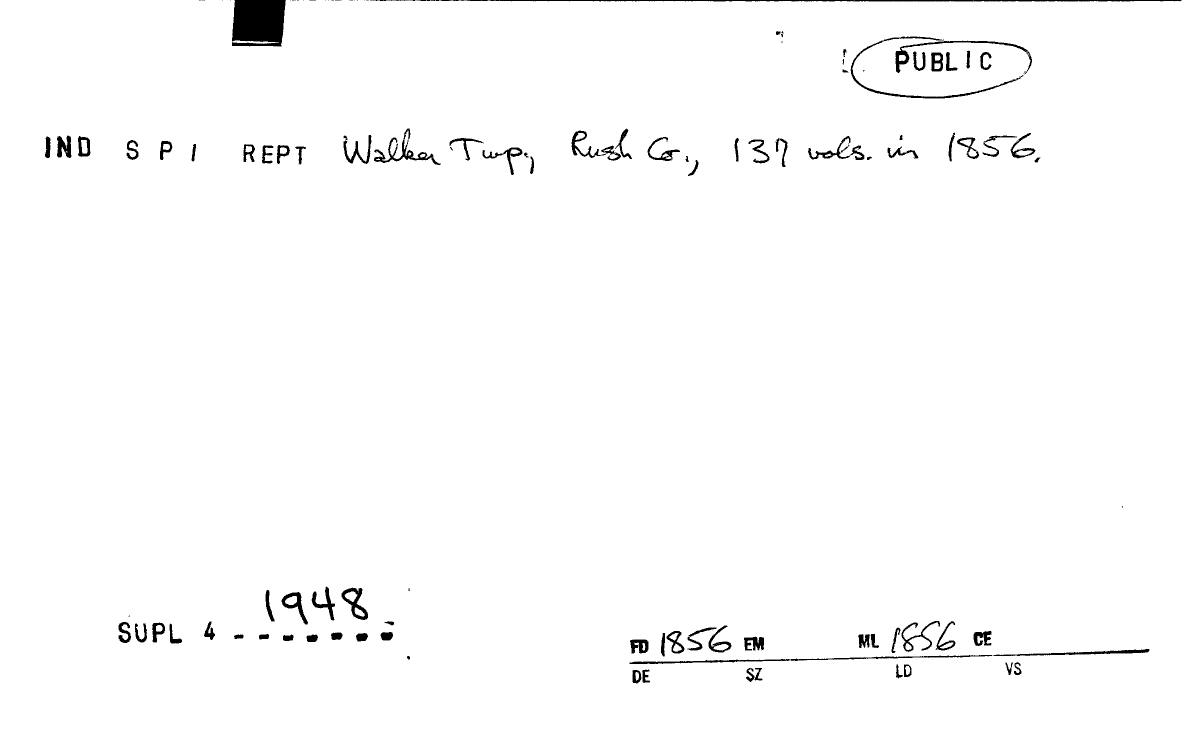 PUBLIC
IND S P I REPT Walker Twp., Rush Co., 137 vols. in 1856.
1948
SUPL 4 -------
FD 1856 EM ML 1856 CE
DE SZ LD VS